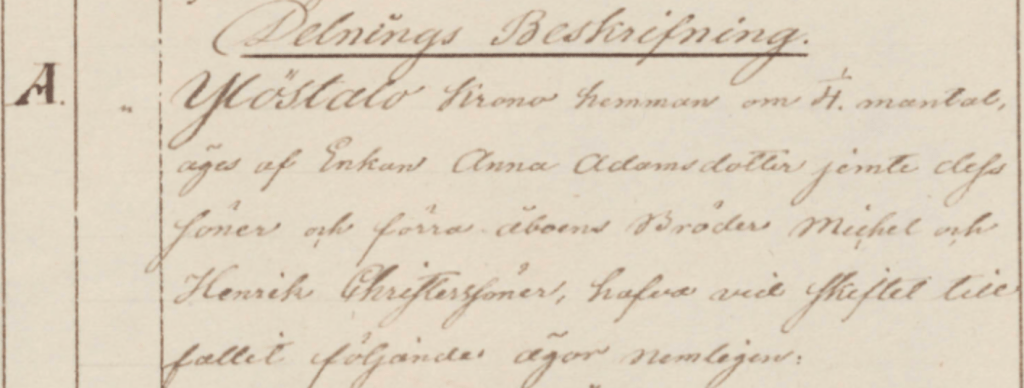 Delnings Beskrifning.
A. " Ylöstalo Krono hemman om 1/4. mantal,
äges af Enkan Anna Adamsdotter jemte dess
söner och förra åboens Bröder Michel och
Henrik Christerssöner, hafva vid skiftet till
fallit följande ägor nemligen: